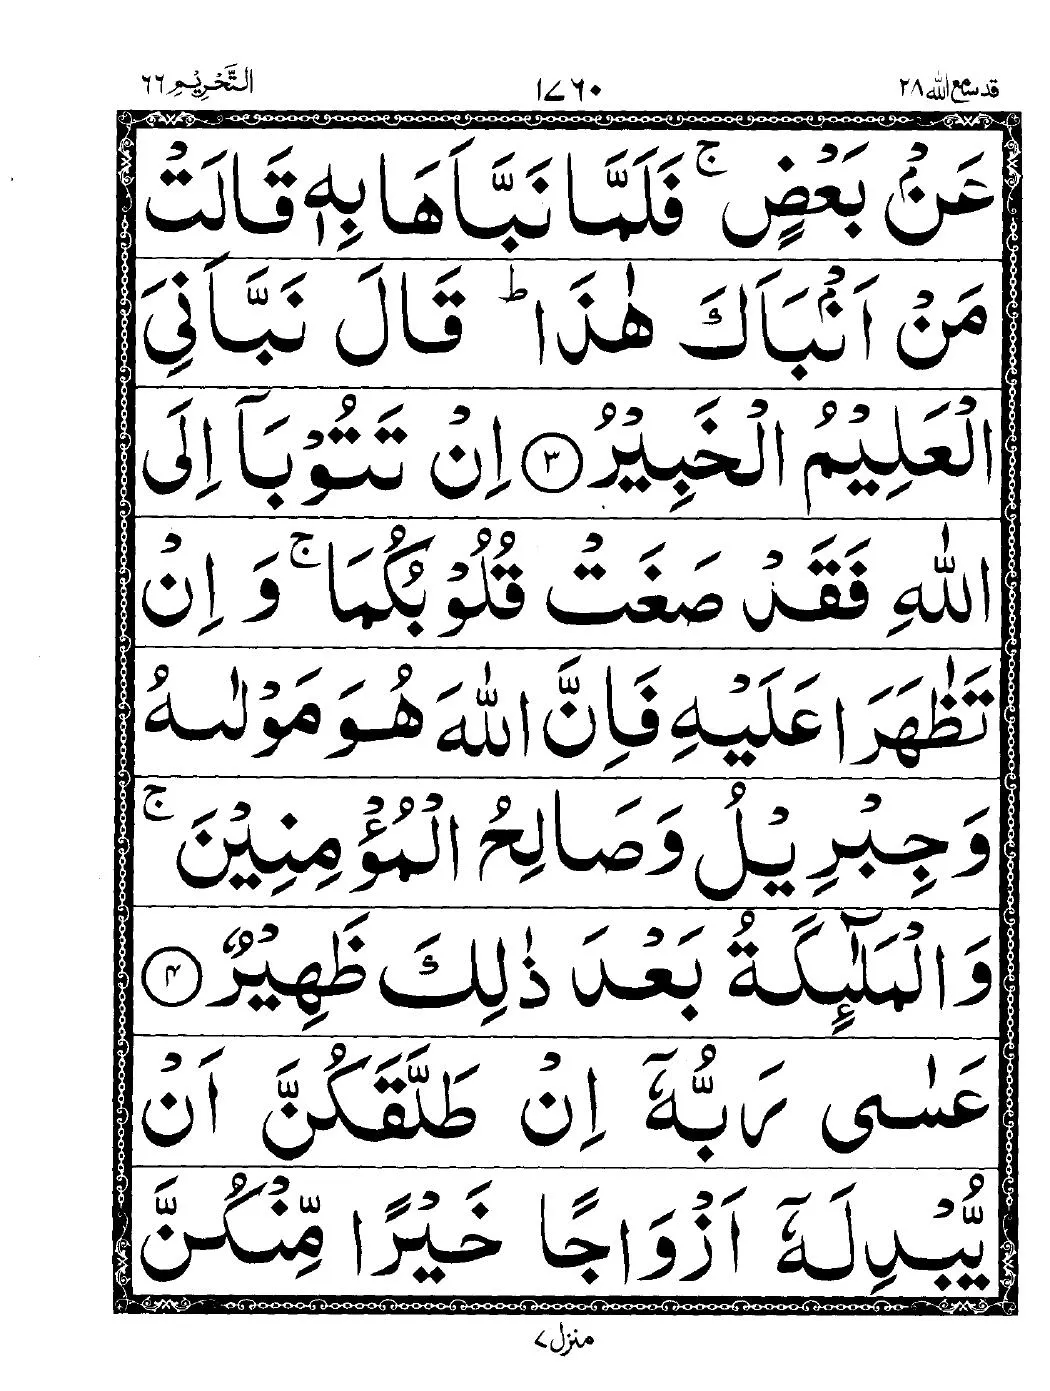 قد سمع الله ٢٨
١٧٦٠
التَّحْرِيْمِ ٦٦
عَنْۢ بَعْضٍ ۚ فَلَمَّا نَبَّاَهَا بِهٖ قَالَتْ
مَنْ اَنْۢبَاَكَ هٰذَا ؕ قَالَ نَبَّاَنِیَ
الْعَلِیْمُ الْخَبِیْرُ ﴿۳﴾ اِنْ تَتُوْبَاۤ اِلَی
اللّٰهِ فَقَدْ صَغَتْ قُلُوْبُكُمَا ۚ وَ اِنْ
تَظٰهَرَا عَلَیْهِ فَاِنَّ اللّٰهَ هُوَ مَوْلٰىهُ
وَ جِبْرِیْلُ وَ صَالِحُ الْمُؤْمِنِیْنَ ۚ
وَ الْمَلٰٓىِٕكَةُ بَعْدَ ذٰلِكَ ظَهِیْرٌ ﴿۴﴾
عَسٰی رَبُّهٗۤ اِنْ طَلَّقَكُنَّ اَنْ
یُّبْدِلَهٗۤ اَزْوَاجًا خَیْرًا مِّنْكُنَّ
منزل ٧